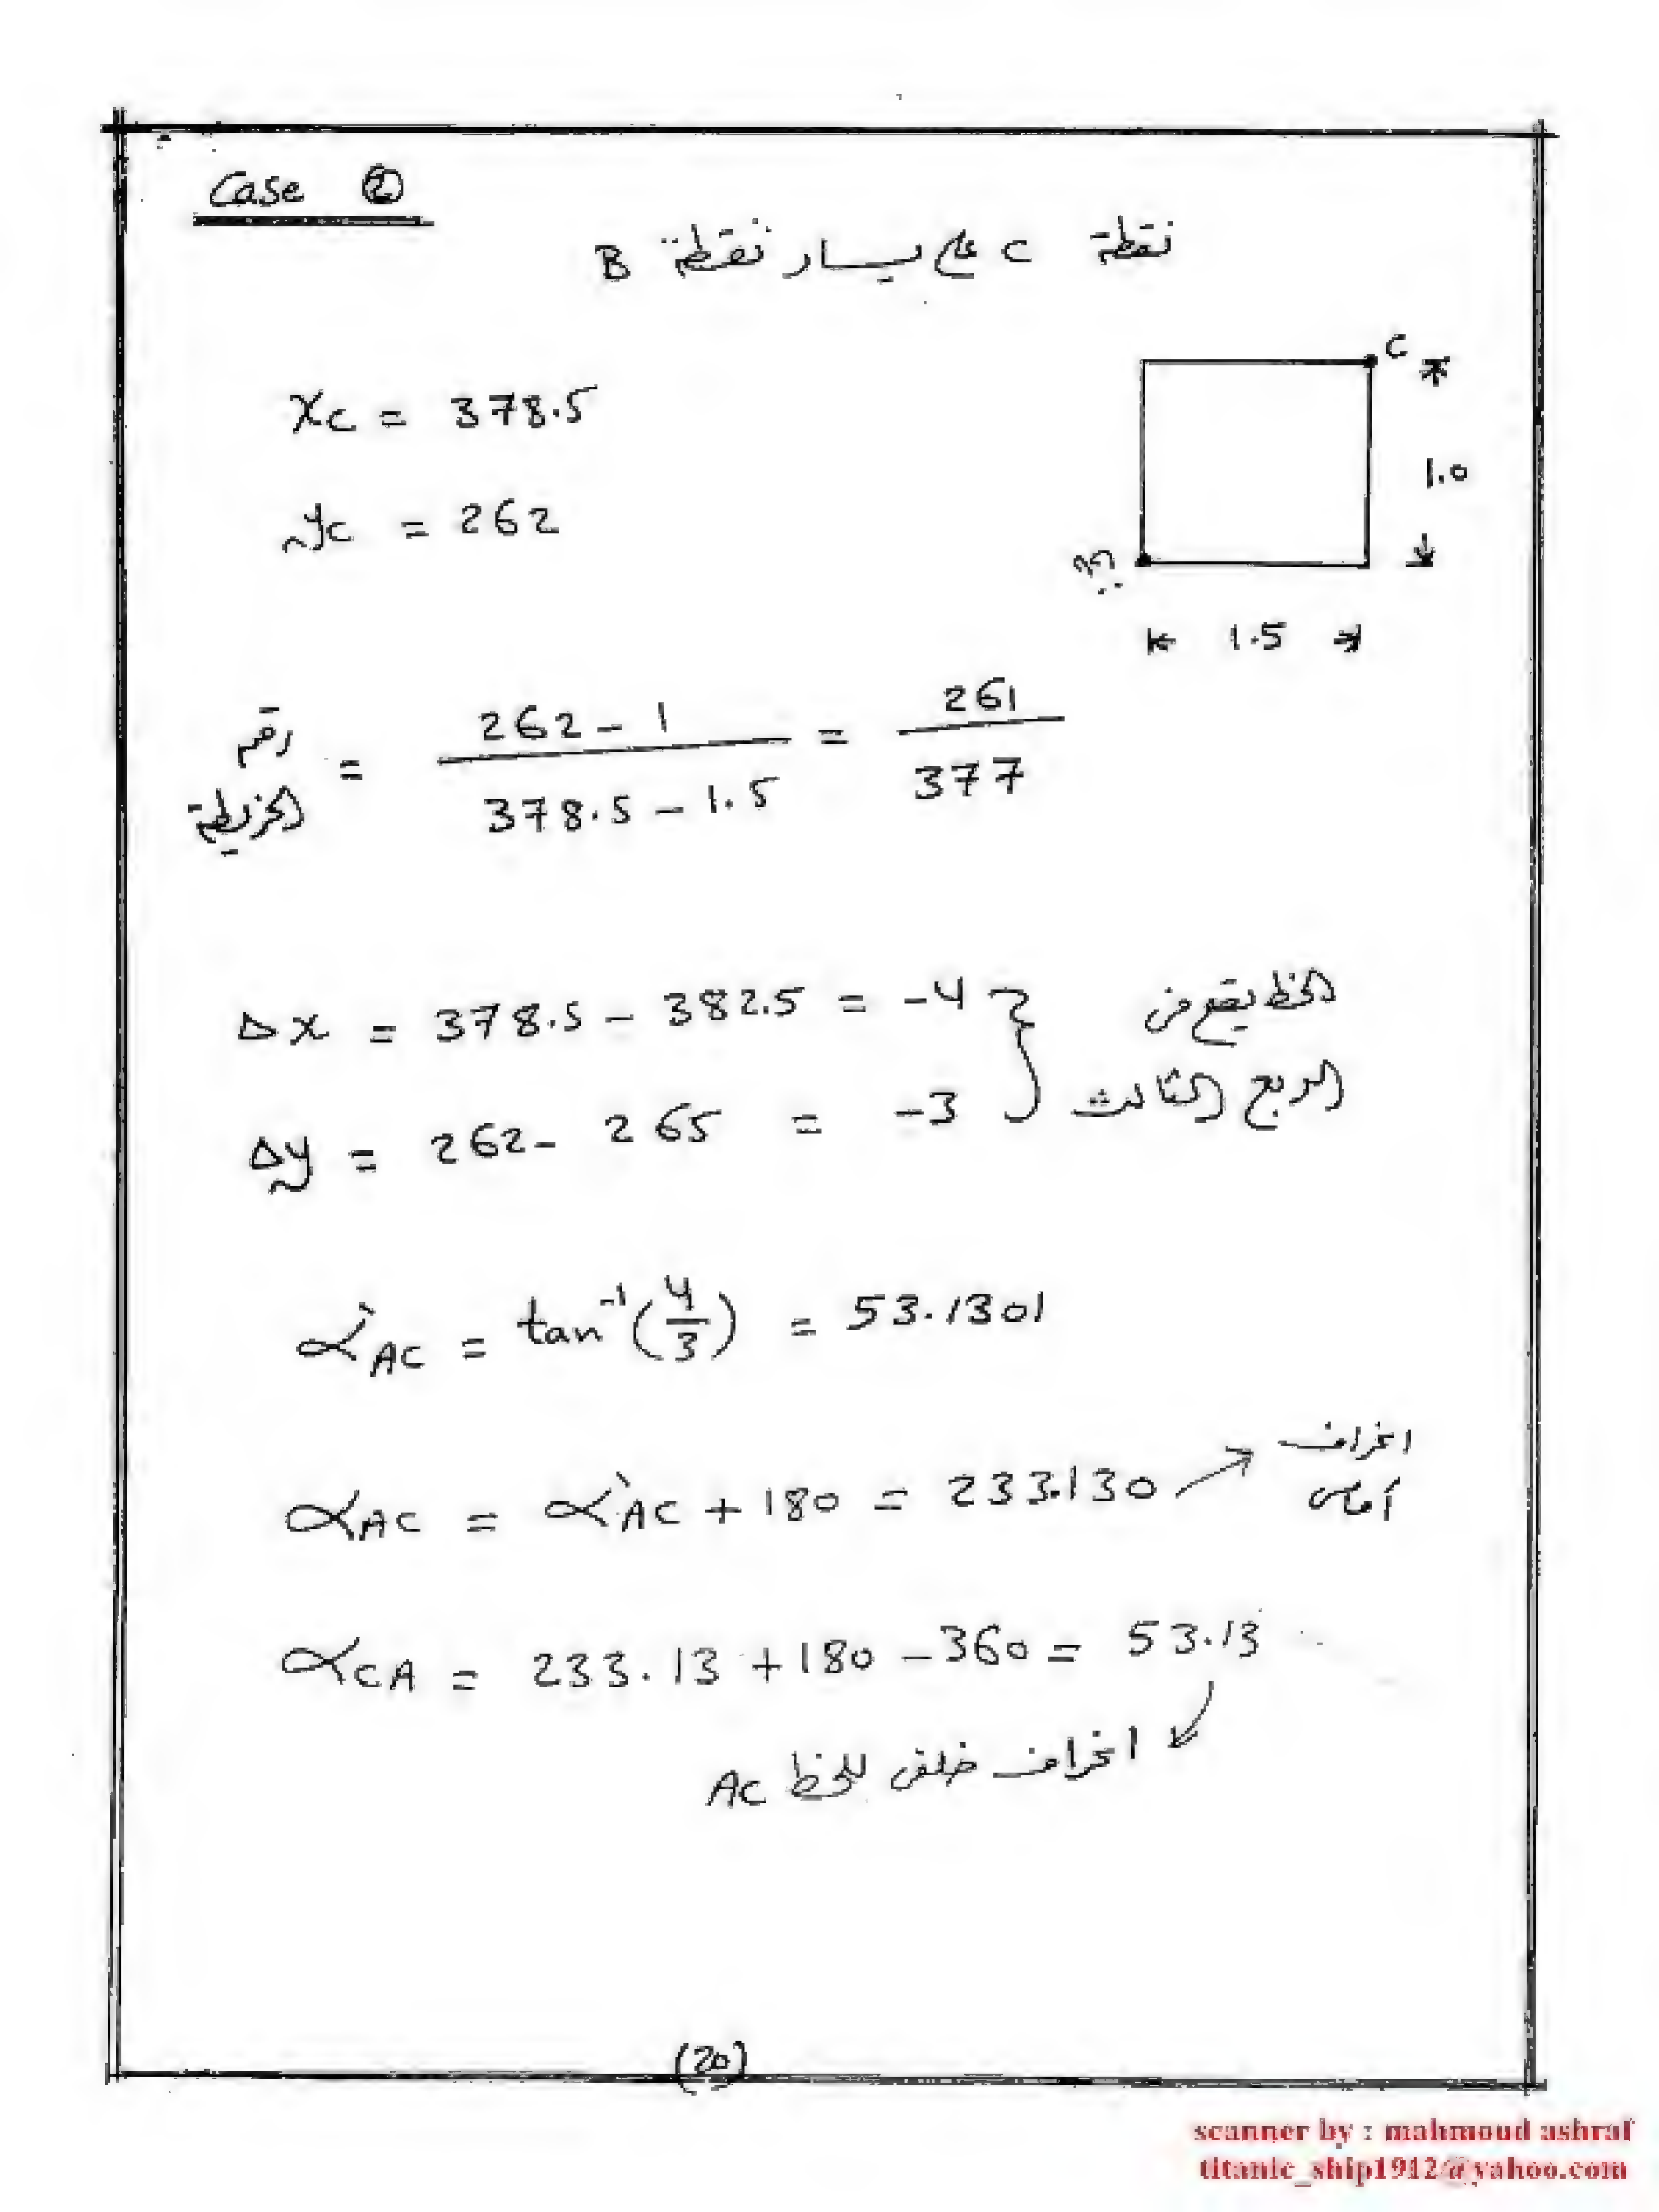 Case ②
نقطة C على يسار نقطة B
C
Xc = 378.5
1.0
yc = 262
1.5
رقم الخريطة = 262 - 1 / 378.5 - 1.5 = 261 / 377
Δx = 378.5 - 382.5 = -4 } الخط يقع فى
Δy = 262 - 265 = -3 الربع الثالث
α`AC = tan⁻¹(4/3) = 53.1301
αAC = α`AC + 180 = 233.130 → انحراف أمامى
αCA = 233.13 + 180 - 360 = 53.13
انحراف خلفى للخط AC
(20)
scanner by : mahmoud ashraf
titanic_ship1912@yahoo.com